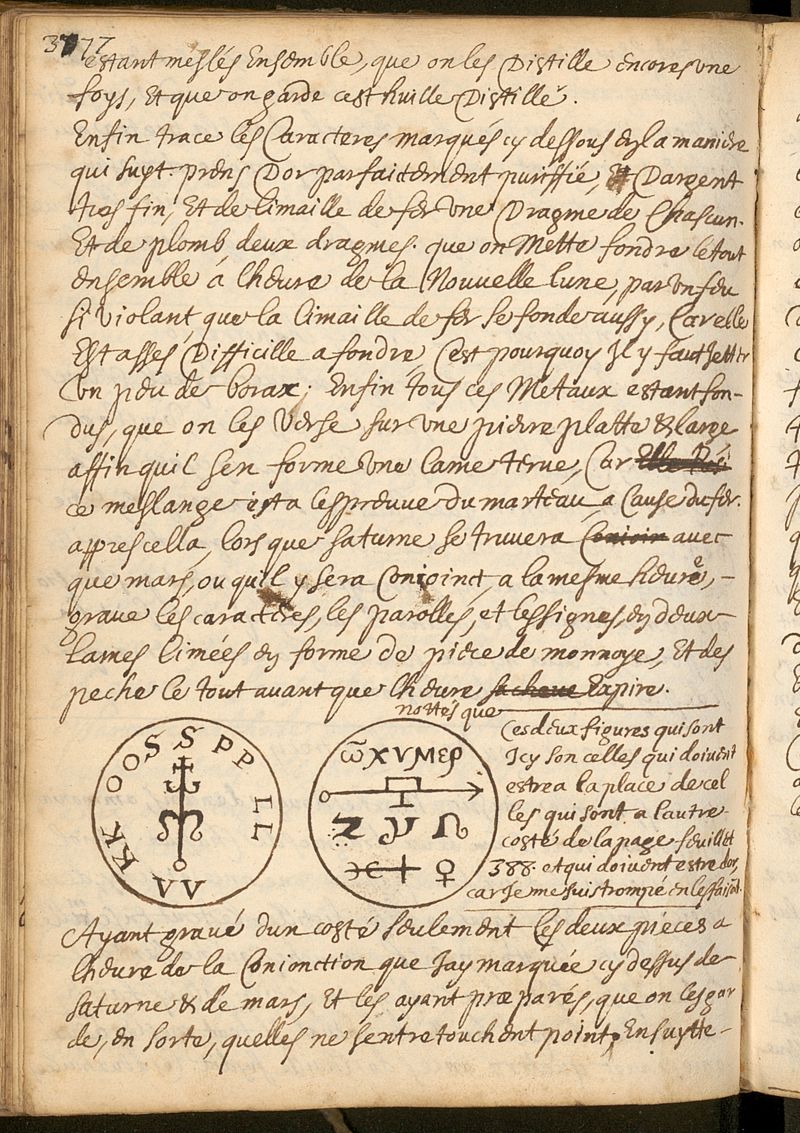 3777
estant mésles Ensemble, que on les Distille encores vne
foys, Et que on garde cest huille Distillé.
Enfin trace les Caracteres marqués cy dessous en la maniere
qui suyt. prens D'or parfaictement puriffié, Et D'argent
tres fin, Et de limaille de fer vne Dragme de Chascun.
Et de plomb deux dragmes. que on Mette fondre le tout
ensemble à lheure de la Nouvelle lune, par vn feu
si violant que la limaille de fer se fonde aussy, Car elle
Est assés Difficille a fondre C'est pourquoy Il y faut Jetter
vn peu de borax; Enfin tous ces Metaux estant fon-
dus, que on les Verse sur vne pierre platte & large
affin quil sen forme vne lame tenue, Car
ce meslange est a lespreuve du marteau a Cause du fer.
appres cella, lors que saturne se truvera avec
que mars, ou quil y sera Conioinct, a la mesme heure, -
grave les caracteres, les parolles, et les signes, en deux
lames limées en forme de piece de monnoye, Et des
peche le tout avant que lheure Expire.
nottés que
Ces deux figures qui sont
Icy son celles qui doivent
estre a la place de cel
les qui sont a lautre
costé de la page feuillet
388. et qui doivent estre d'or,
car Je me suis trompé en les faisant.
S S P P L L V V K K O O
ω X V M E P
Ayant gravé d'un costé seulement les deux pieces a
lheure de la Conionction que Jay marquée cy dessus de
saturne & de mars, Et les ayant præparés, que on les gar
de, en sorte, quelles ne sentretouchent point, Ensuytte -